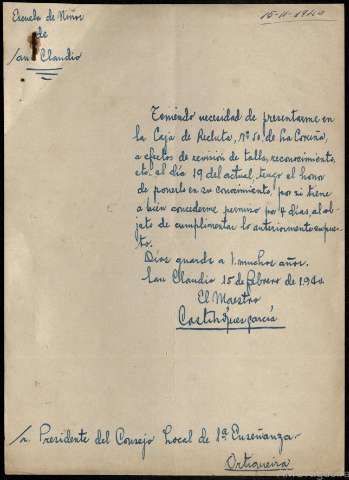 Escuela de Niños
de
San Claudio
15-II-1940
Teniendo necesidad de presentarme en
la Caja de Recluta, nº 50 de La Coruña,
a efectos de revisión de talla, reconocimiento,
etc. el día 19 del actual, tengo el honor
de ponerlo en su conocimiento, por si tiene
a bien concederme permiso por 4 días, al ob-
jeto de cumplimentar lo anteriormente expu-
esto.
Dios guarde a V. muchos años.
San Claudio 15 de febrero de 1940
El Maestro
García
Sr. Presidente del Consejo Local de 1ª Enseñanza.
Ortigueira